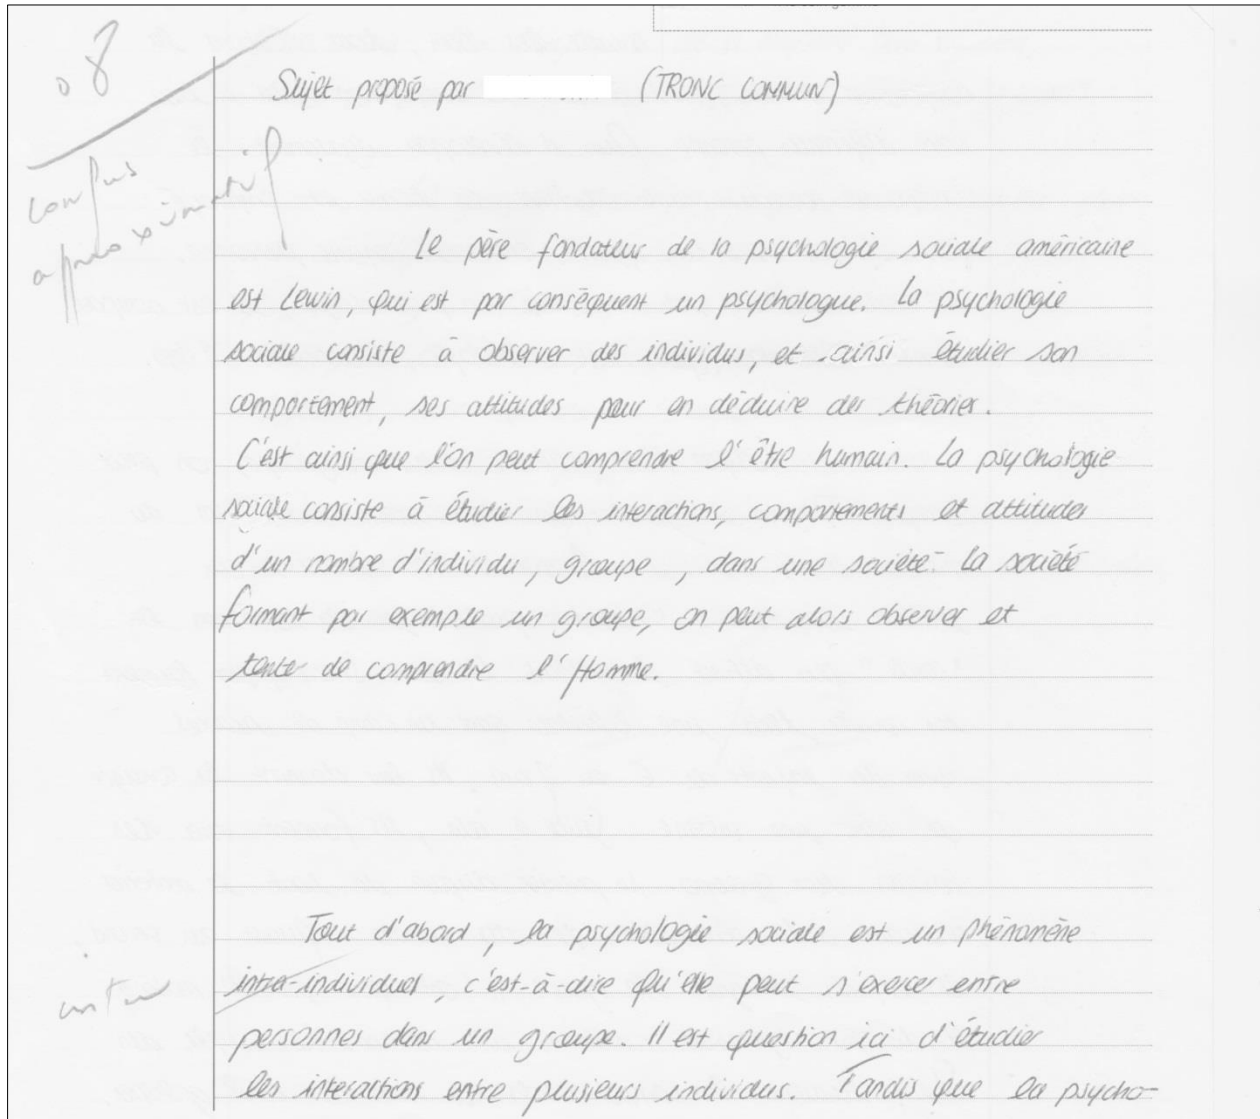 08
Sujet proposé par (TRONC COMMUN)
confus
approximatif
Le père fondateur de la psychologie sociale américaine
est Lewin, qui est par conséquent un psychologue. La psychologie
sociale consiste à observer des individus, et ainsi étudier son
comportement, ses attitudes pour en déduire des théories.
C'est ainsi que l'on peut comprendre l'être humain. La psychologie
sociale consiste à étudier les interactions, comportements et attitudes
d'un nombre d'individu, groupe, dans une société. La société
formant par exemple un groupe, on peut alors observer et
tenter de comprendre l'Homme.
Tout d'abord, la psychologie sociale est un phénomène
inter
intra-individuel, c'est-à-dire qu'elle peut s'exercer entre
personnes dans un groupe. Il est question ici d'étudier
les interactions entre plusieurs individus. Tandis que la psycho-